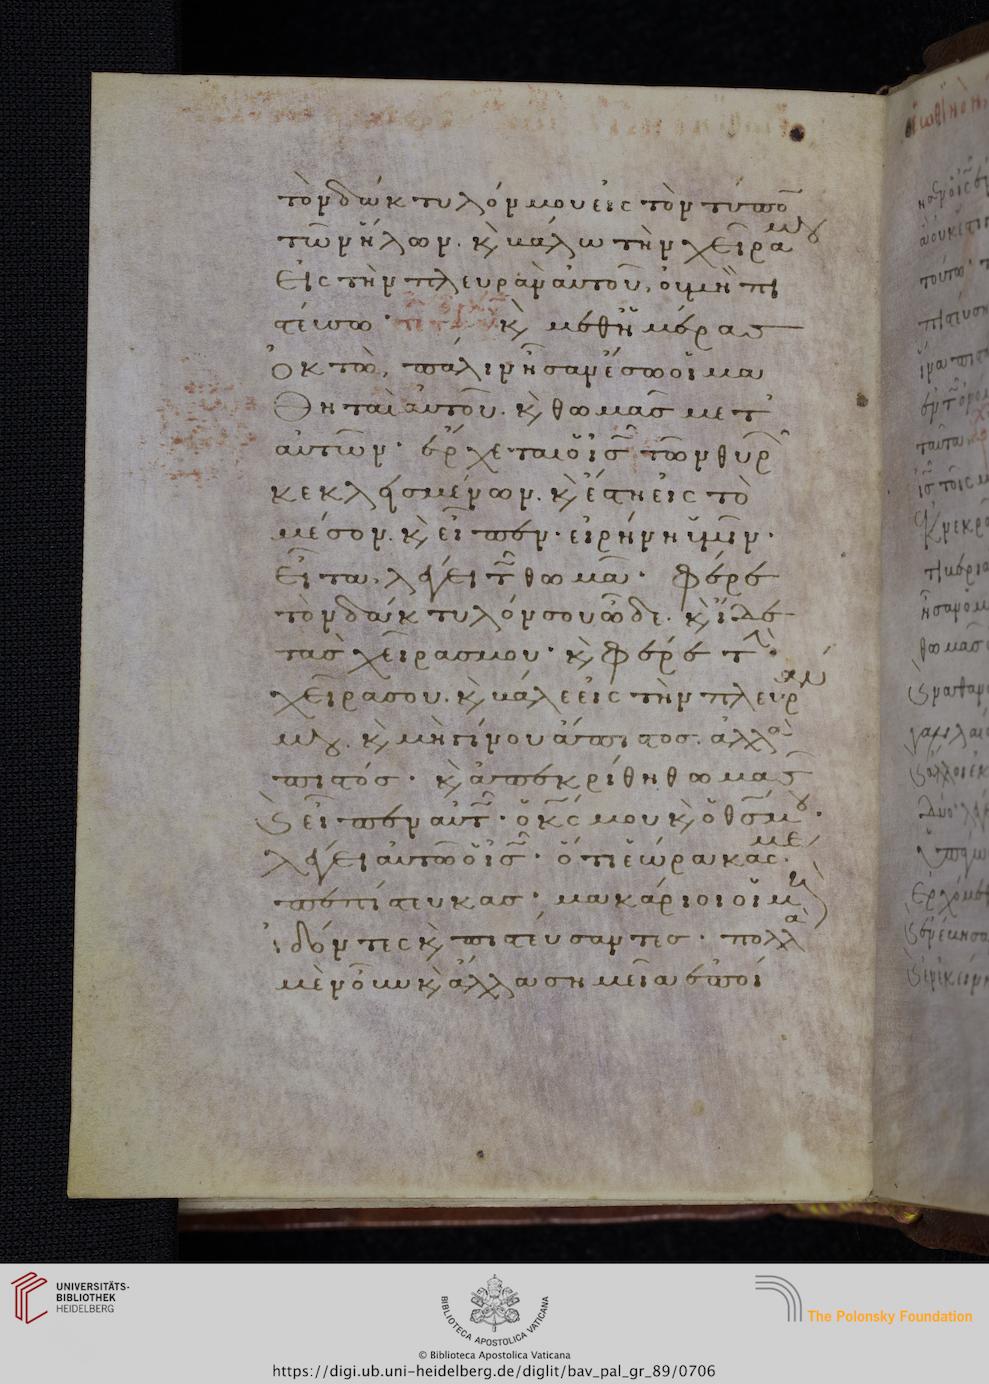 τὸν δάκτυλόν μου εἰς τὸν τύπο
τῶν ἥλων. κ̀ βάλω τὴν χεῖρα μου
εἰς τὴν πλευρὰν αὐτοῦ, οὐ μὴ πι
στεύσω· κ̀ μεθ ἡμέρας
ὀκτὼ, πάλιν ἦσαν ἔσω οἱ μα
θηταὶ αὐτοῦ. κ̀ θωμᾶς μετ'
αὐτῶν· ἔρχεται ὁ ἰς τῶν θυρ
κεκλεισμένων. κ̀ ἔστη εἰς τὸ
μέσον. κ̀ εἶπεν· εἰρήνη ὑμῖν·
εἶτα, λέγει τ θωμᾶ· φέρε
τὸν δάκτυλόν σου ὧδε. κ̀ ἴδε
τὰς χεῖρας μου· κ̀ φέρε τὴν
χεῖρα σου. κ̀ βάλε εἰς τὴν πλευράν
μου. κ̀ μὴ γίνου ἄπιστος. ἀλλὰ
πιστός· κ̀ ἀπεκρίθη θωμᾶς
κ̀ εἶπεν αὐτ· ὁ κς μου κ̀ ὁ θς μου·
λέγει αὐτῶ ὁ ἰς· ὅτι ἑώρακας με
πεπίστευκας· μακάριοι οἱ μὴ
ἰδόντες κ̀ πιστεύσαντες· πολλὰ
μὲν οὖν κ̀ ἄλλα σημεῖα ἐποί
UNIVERSITÄTS-
BIBLIOTHEK
HEIDELBERG
BIBLIOTECA APOSTOLICA VATICANA
The Polonsky Foundation
© Biblioteca Apostolica Vaticana
https://digi.ub.uni-heidelberg.de/diglit/bav_pal_gr_89/0706